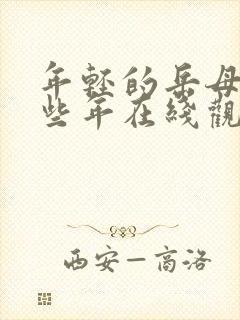 年轻的岳母
些年在线觀
西安－高洛